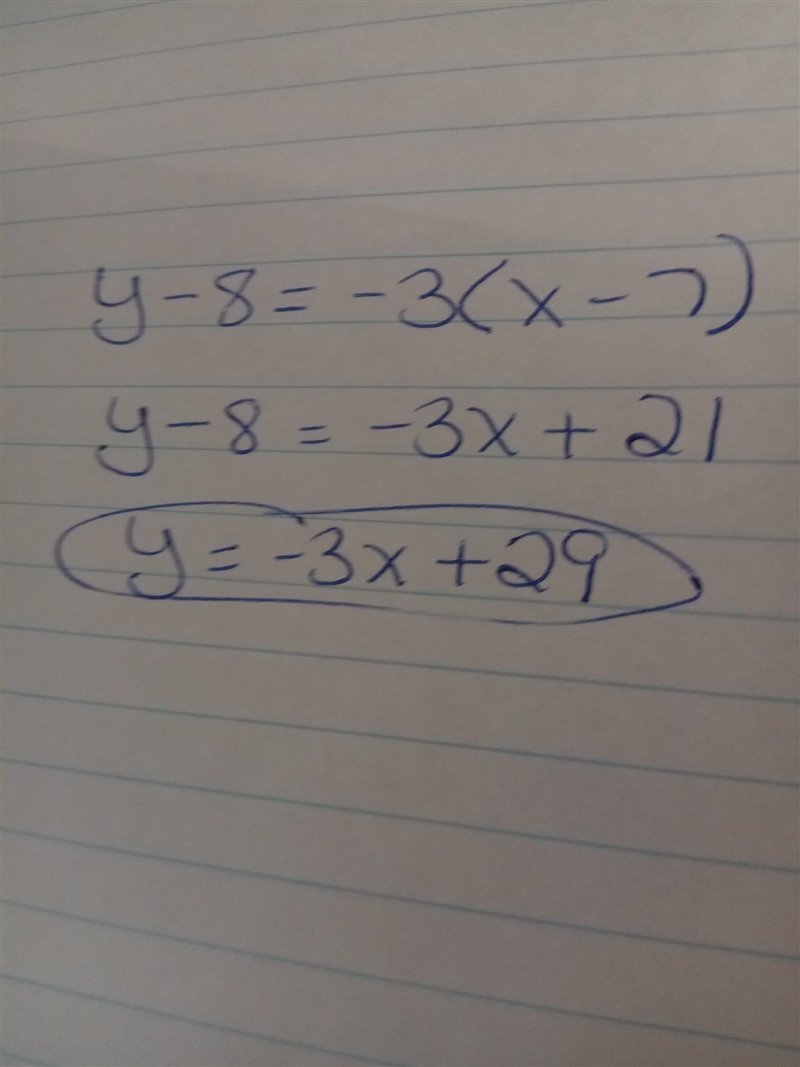 y-8 = -3(x-7)
y-8 = -3x + 21
y = -3x + 29